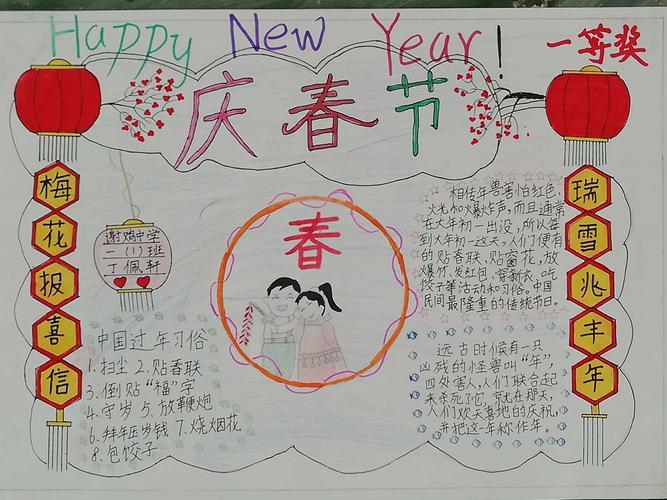 Happy New Year!
一等奖
庆春节
梅花报喜信
瑞雪兆丰年
谢鸡中学
一(1)班
丁佩轩
春
相传年兽害怕红色,
火光和爆炸声,而且通常
在大年初一出没,所以每
到大年初一这天,人们便有
的贴春联、贴窗花,放
爆竹、发红包、穿新衣、吃
饺子等活动和习俗。中国
民间最隆重的传统节日。
中国过年习俗
1.扫尘 2.贴春联
3.倒贴“福”字
4.守岁 5.放鞭炮
6.拜年压岁钱 7.烧烟花
8.包饺子
远古时候有一只
凶残的怪兽叫“年”,
四处害人,人们联合起
来杀死了它,就在那天,
人们欢天喜地的庆祝,
并把这一年称作年。